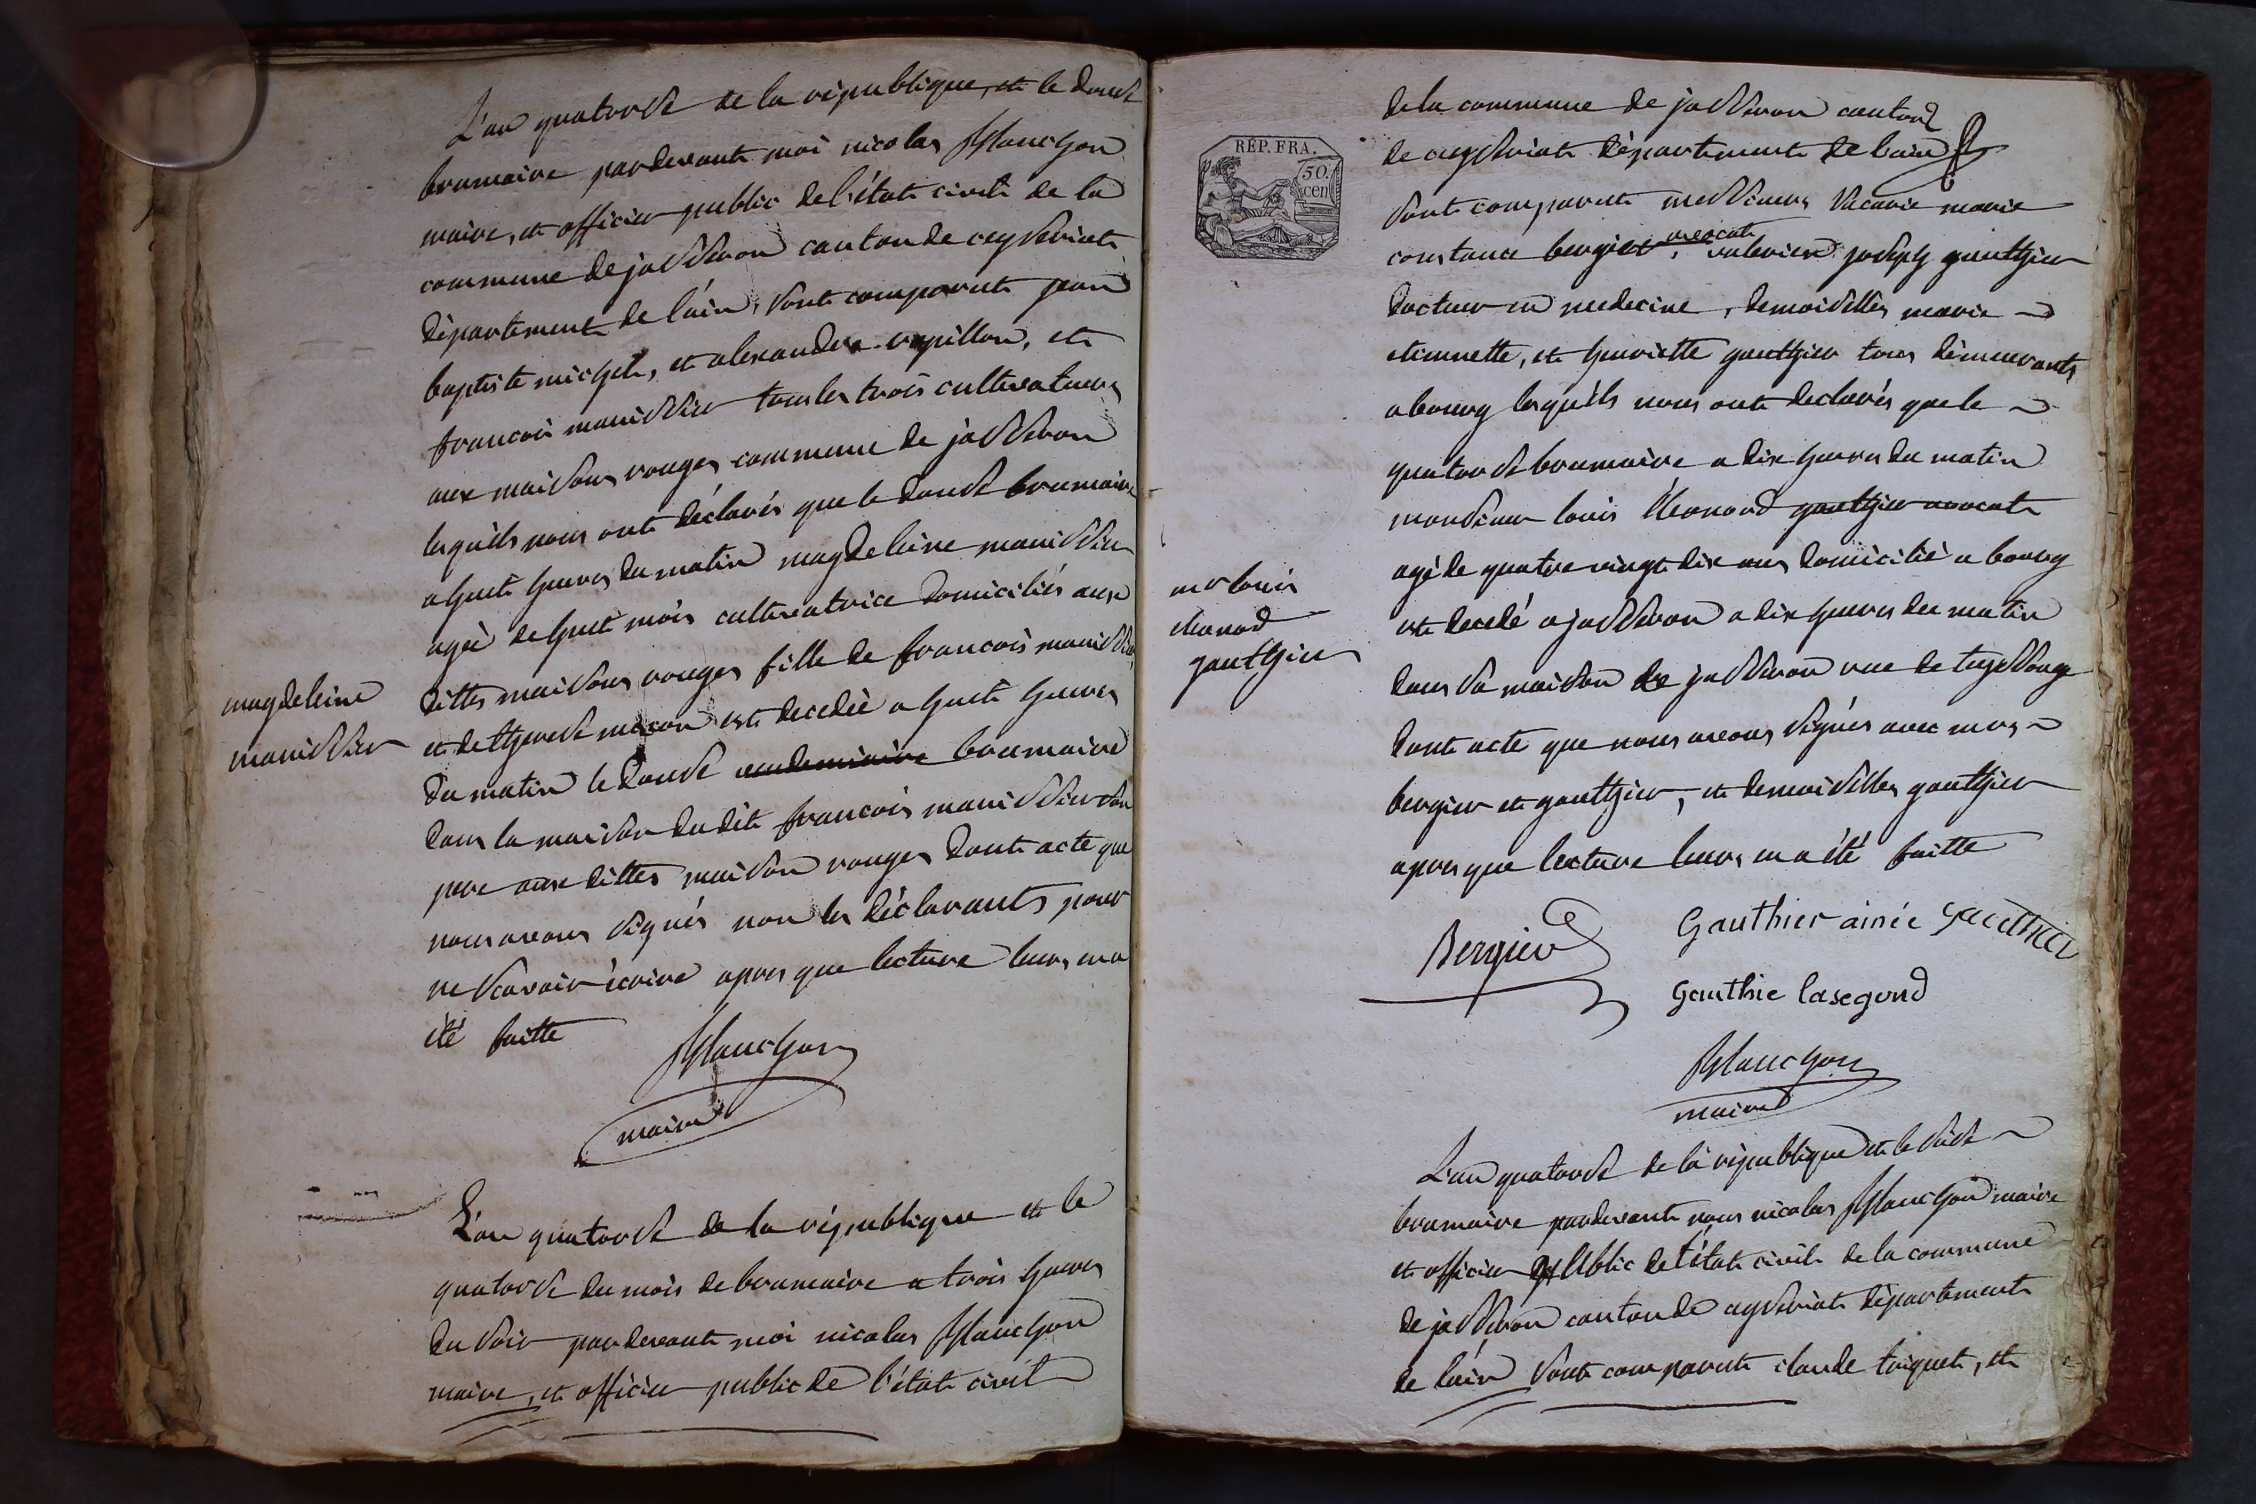 L'an quatorse de la république, et le douse
brumaire pardevant moi nicolas Planchon
maire, et officier public de l'état civil de la
commune de jasseron canton de ceyseriat
département de l'ain, sont comparut jean
baptiste michel, et alexandre vapillon, et
francois manissier tous les trois cultivateurs
aux maisons rouges commune de jasseron
lesquels nous ont déclarés que le douse brumaire
a huit heures du matin magdeleine manissier
agée de huit mois cultivatrice domiciliés aux
dittes maisons rouges fille de francois manissier
et de therese macon est decedée a huit heures
du matin le douse vendemiaire brumaire
dans la maison du dit francois manissier son
pere aux dittes maison rouges dont acte que
nous avons signés non les déclarants pour
ne scavoir écrire apres que lecture leurs en a
été faitte
Planchon
maire
magdeleine
manissier
L'an quatorse de la république et le
quatorse du mois de brumaire a trois heures
du soir pardevant moi nicolas Planchon
maire, et officier public de l'état civil
RÉP. FRA.
50.
cen
de la commune de jasseron canton
de ceyseriat département de l'ain
sont comparut messieurs marie
constance bergier, avocat valerien joseph gauthier
docteur en medecine, demoiselles marie
etiennette, et henriette gauthier tous démeurants
a bourg lesquels nous ont declarés que le
quatorse brumaire a dix heures du matin
monsieur louis léonard gauthier avocat
agé de quatre vingt dix ans domicilié a bourg
est decedé a jasseron a dix heures du matin
dans sa maison de jasseron rue de
dont acte que nous avons signés avec mrs
bergier et gauthier, et demoiselles gauthier
apres que lecture leurs en a été faitte
mr louis
léonard
gauthier
Bergier
Gauthier ainée gauthier
Gauthie lasegond
Planchon
maire
L'an quatorse de la république et le seise
brumaire pardevant nous nicolas Planchon maire
et officier public de l'état civil de la commune
de jasseron canton de ceyseriat département
de l'ain sont comparut claude triquet, et